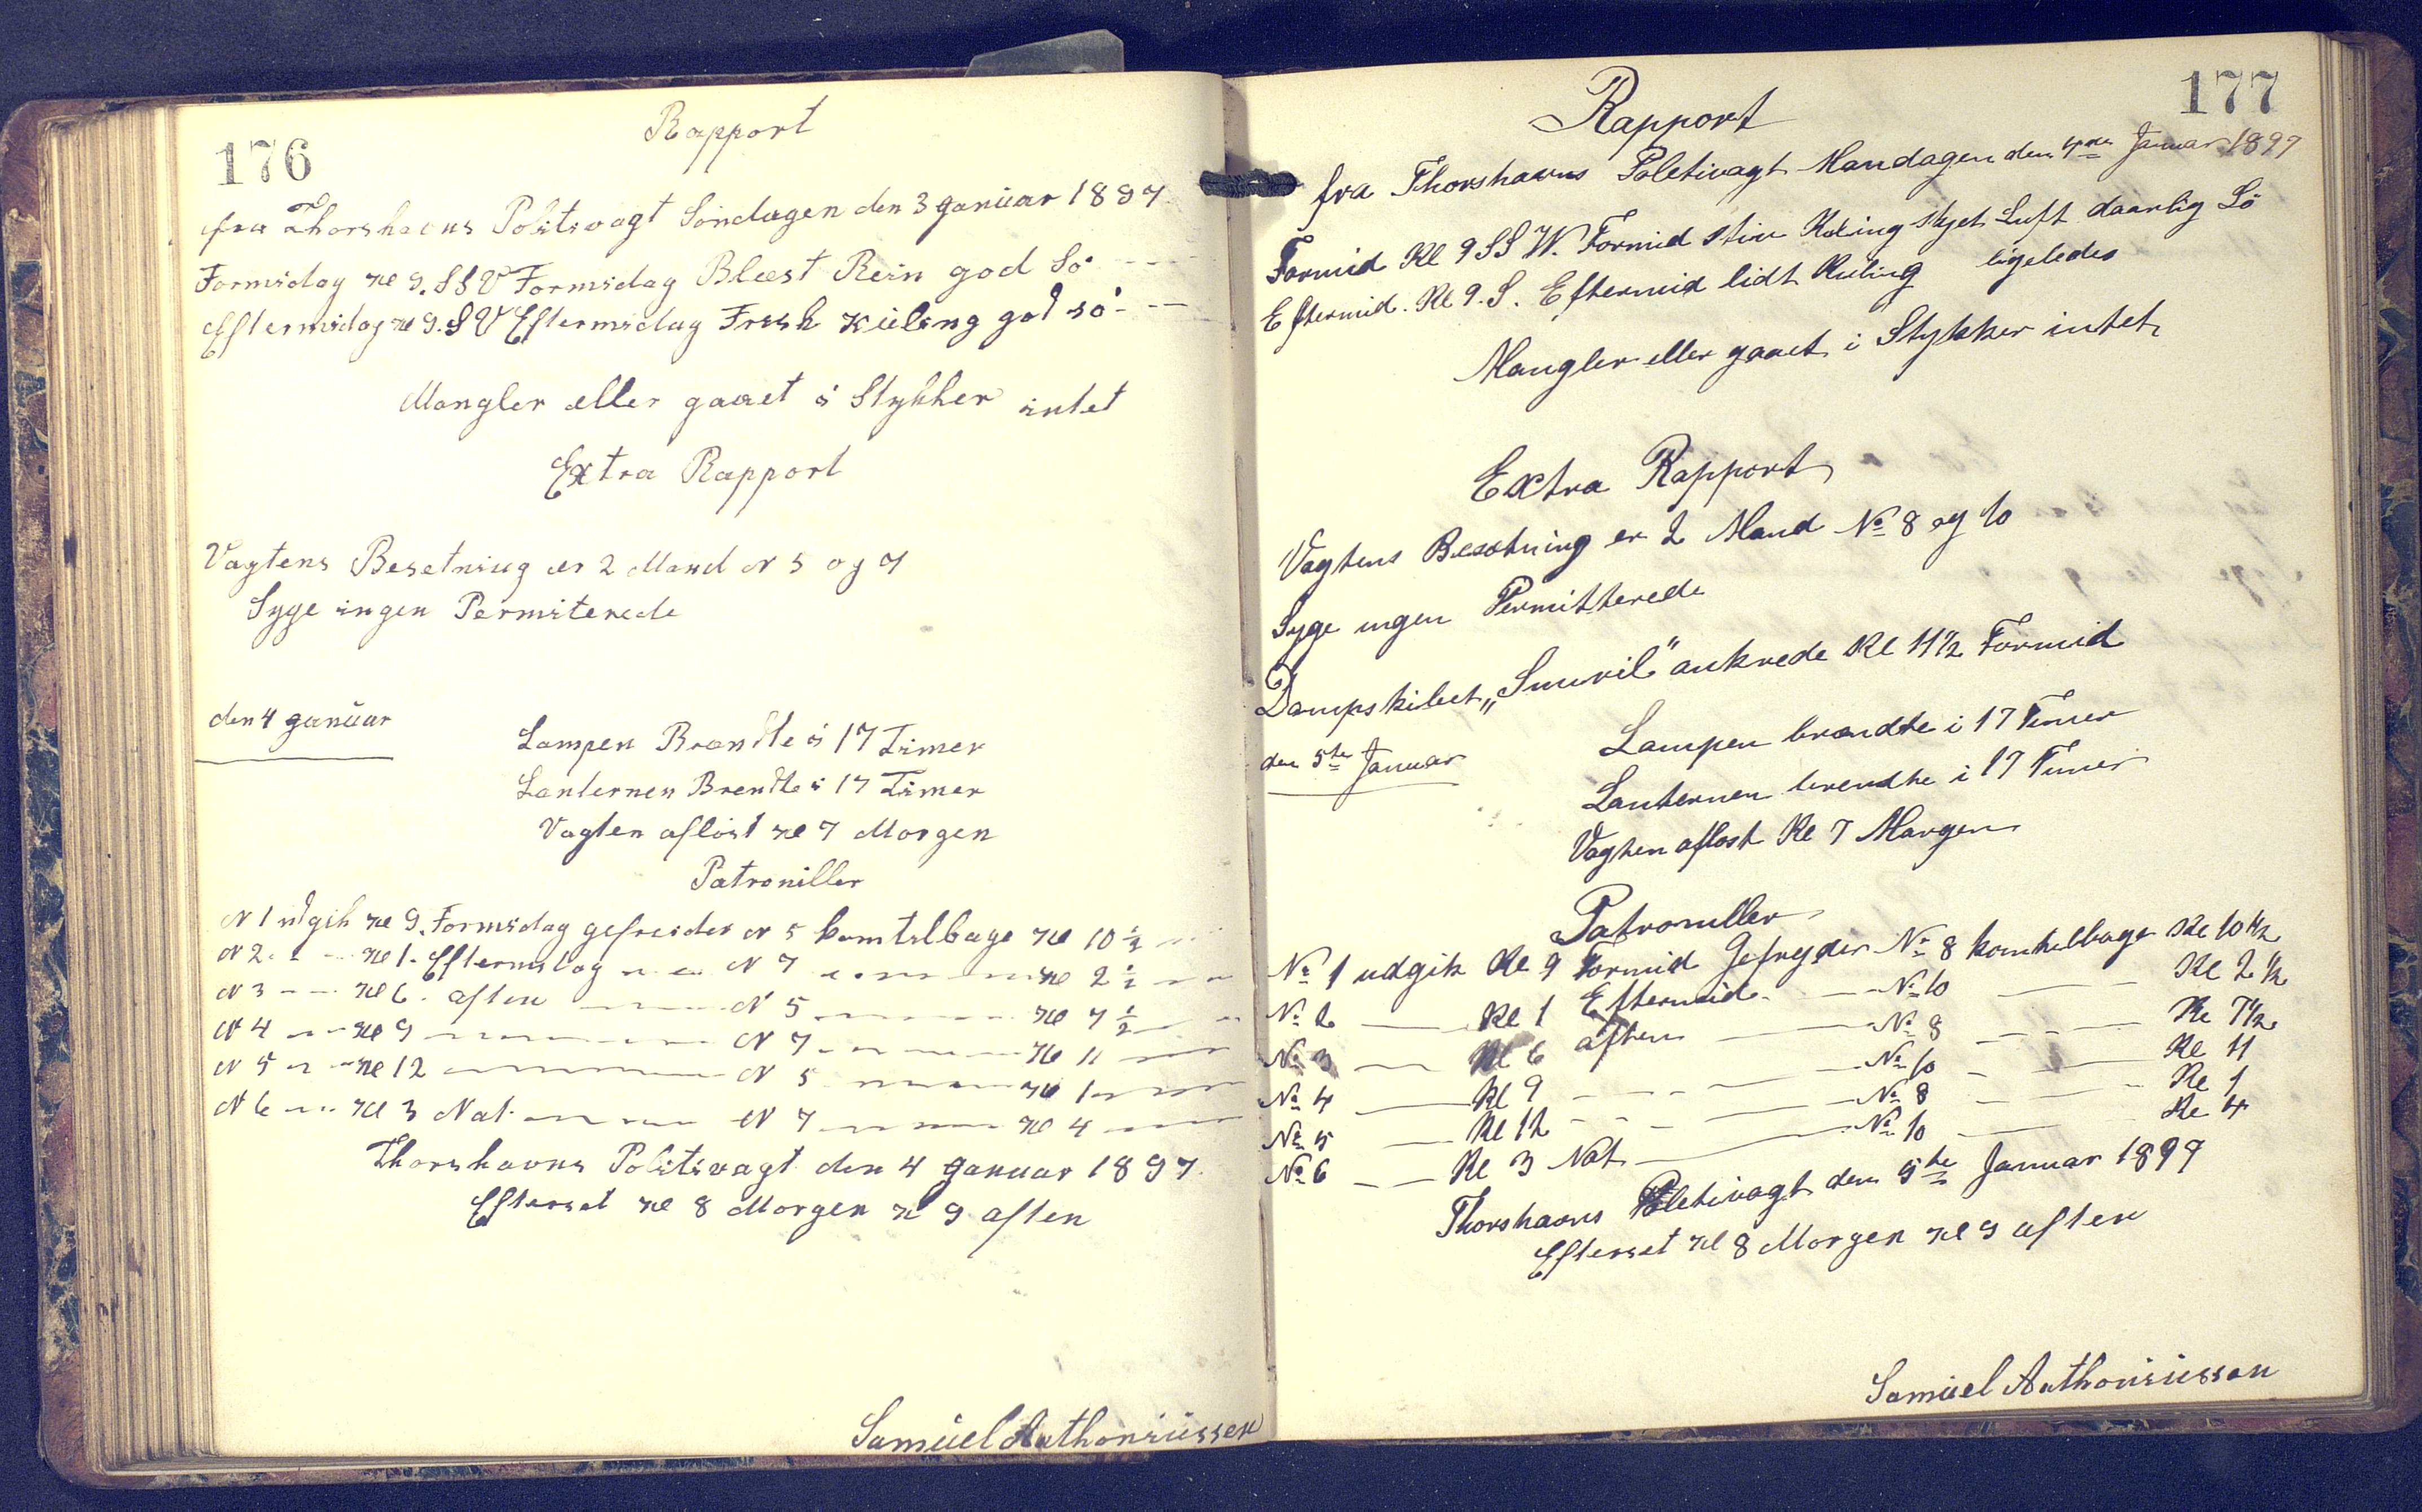 176
Rapport
fra Thorshavns Politivagt Söndagen den 3 Januar 1897.
Formidag Kl 9. SSV Formidag Blæst Rein god Sö
Eftermidag Kl 9. SV Eftermidag Frisk Kuling god sö
Mangler eller gaaet i Stykker intet
Extra Rapport
Vagtens Besetning er 2 Mand N 5 og 7
Syge ingen Permiterede
den 4 Januar
Lampen Brændte i 17 Timer
Lanternen Brendte i 17 Timer
Vagten aflöst Kl 7 Morgen
Patroniller
N 1 udgik Kl 9. Formidag gefreider N 5 komtilbage Kl 10 1/2
N 2 Kl 1. Eftermidag N 7 Kl 2 1/2
N 3 Kl 6. aften N 5 Kl 7 1/2
N 4 Kl 9 N 7 Kl 11
N 5 Kl 12 N 5 Kl 1
N 6 Kl 3 Nat N 7 Kl 4
Thorshavns Politivagt den 4 Januar 1897.
Efterset Kl 8 Morgen Kl 9 aften
Samuel Anthoniussen
177
Rapport
fra Thorshavns Poletivagt Mandagen den 4den Januar 1897
Formid Kl 9 SSW. Formid stiv Kuling skyet Luft daarlig Sö
Eftermid. Kl 9. S. Eftermid lidt Kuling ligeledes
Mangler eller gaaet i Stykker intet
Extra Rapport
Vagtens Besætning er 2 Mand No 8 og 10
Syge ingen Permitterede
Dampskibet „Smiril" ankrede Kl 11½ Formid
den 5te Januar
Lampen brændte i 17 Timer
Lanternen brendte i 17 Timer
Vagten aflost Kl 7 Morgen
Patroniller
No 1 udgik Kl 9 Formid Gefreyder No 8 komtilbage Kl 10½
No 2 Kl 1 Eftermid. No 10 Kl 2½
No 3 Kl 6 aften No 8 Kl 7½
No 4 Kl 9 No 10 Kl 11
No 5 Kl 12 No 8 Kl 1
No 6 Kl 3 Nat No 10 Kl 4
Thorshavns Poletivagt den 5te Januar 1897
Efterset Kl 8 Morgen Kl 9 aften
Samuel Anthoniussen